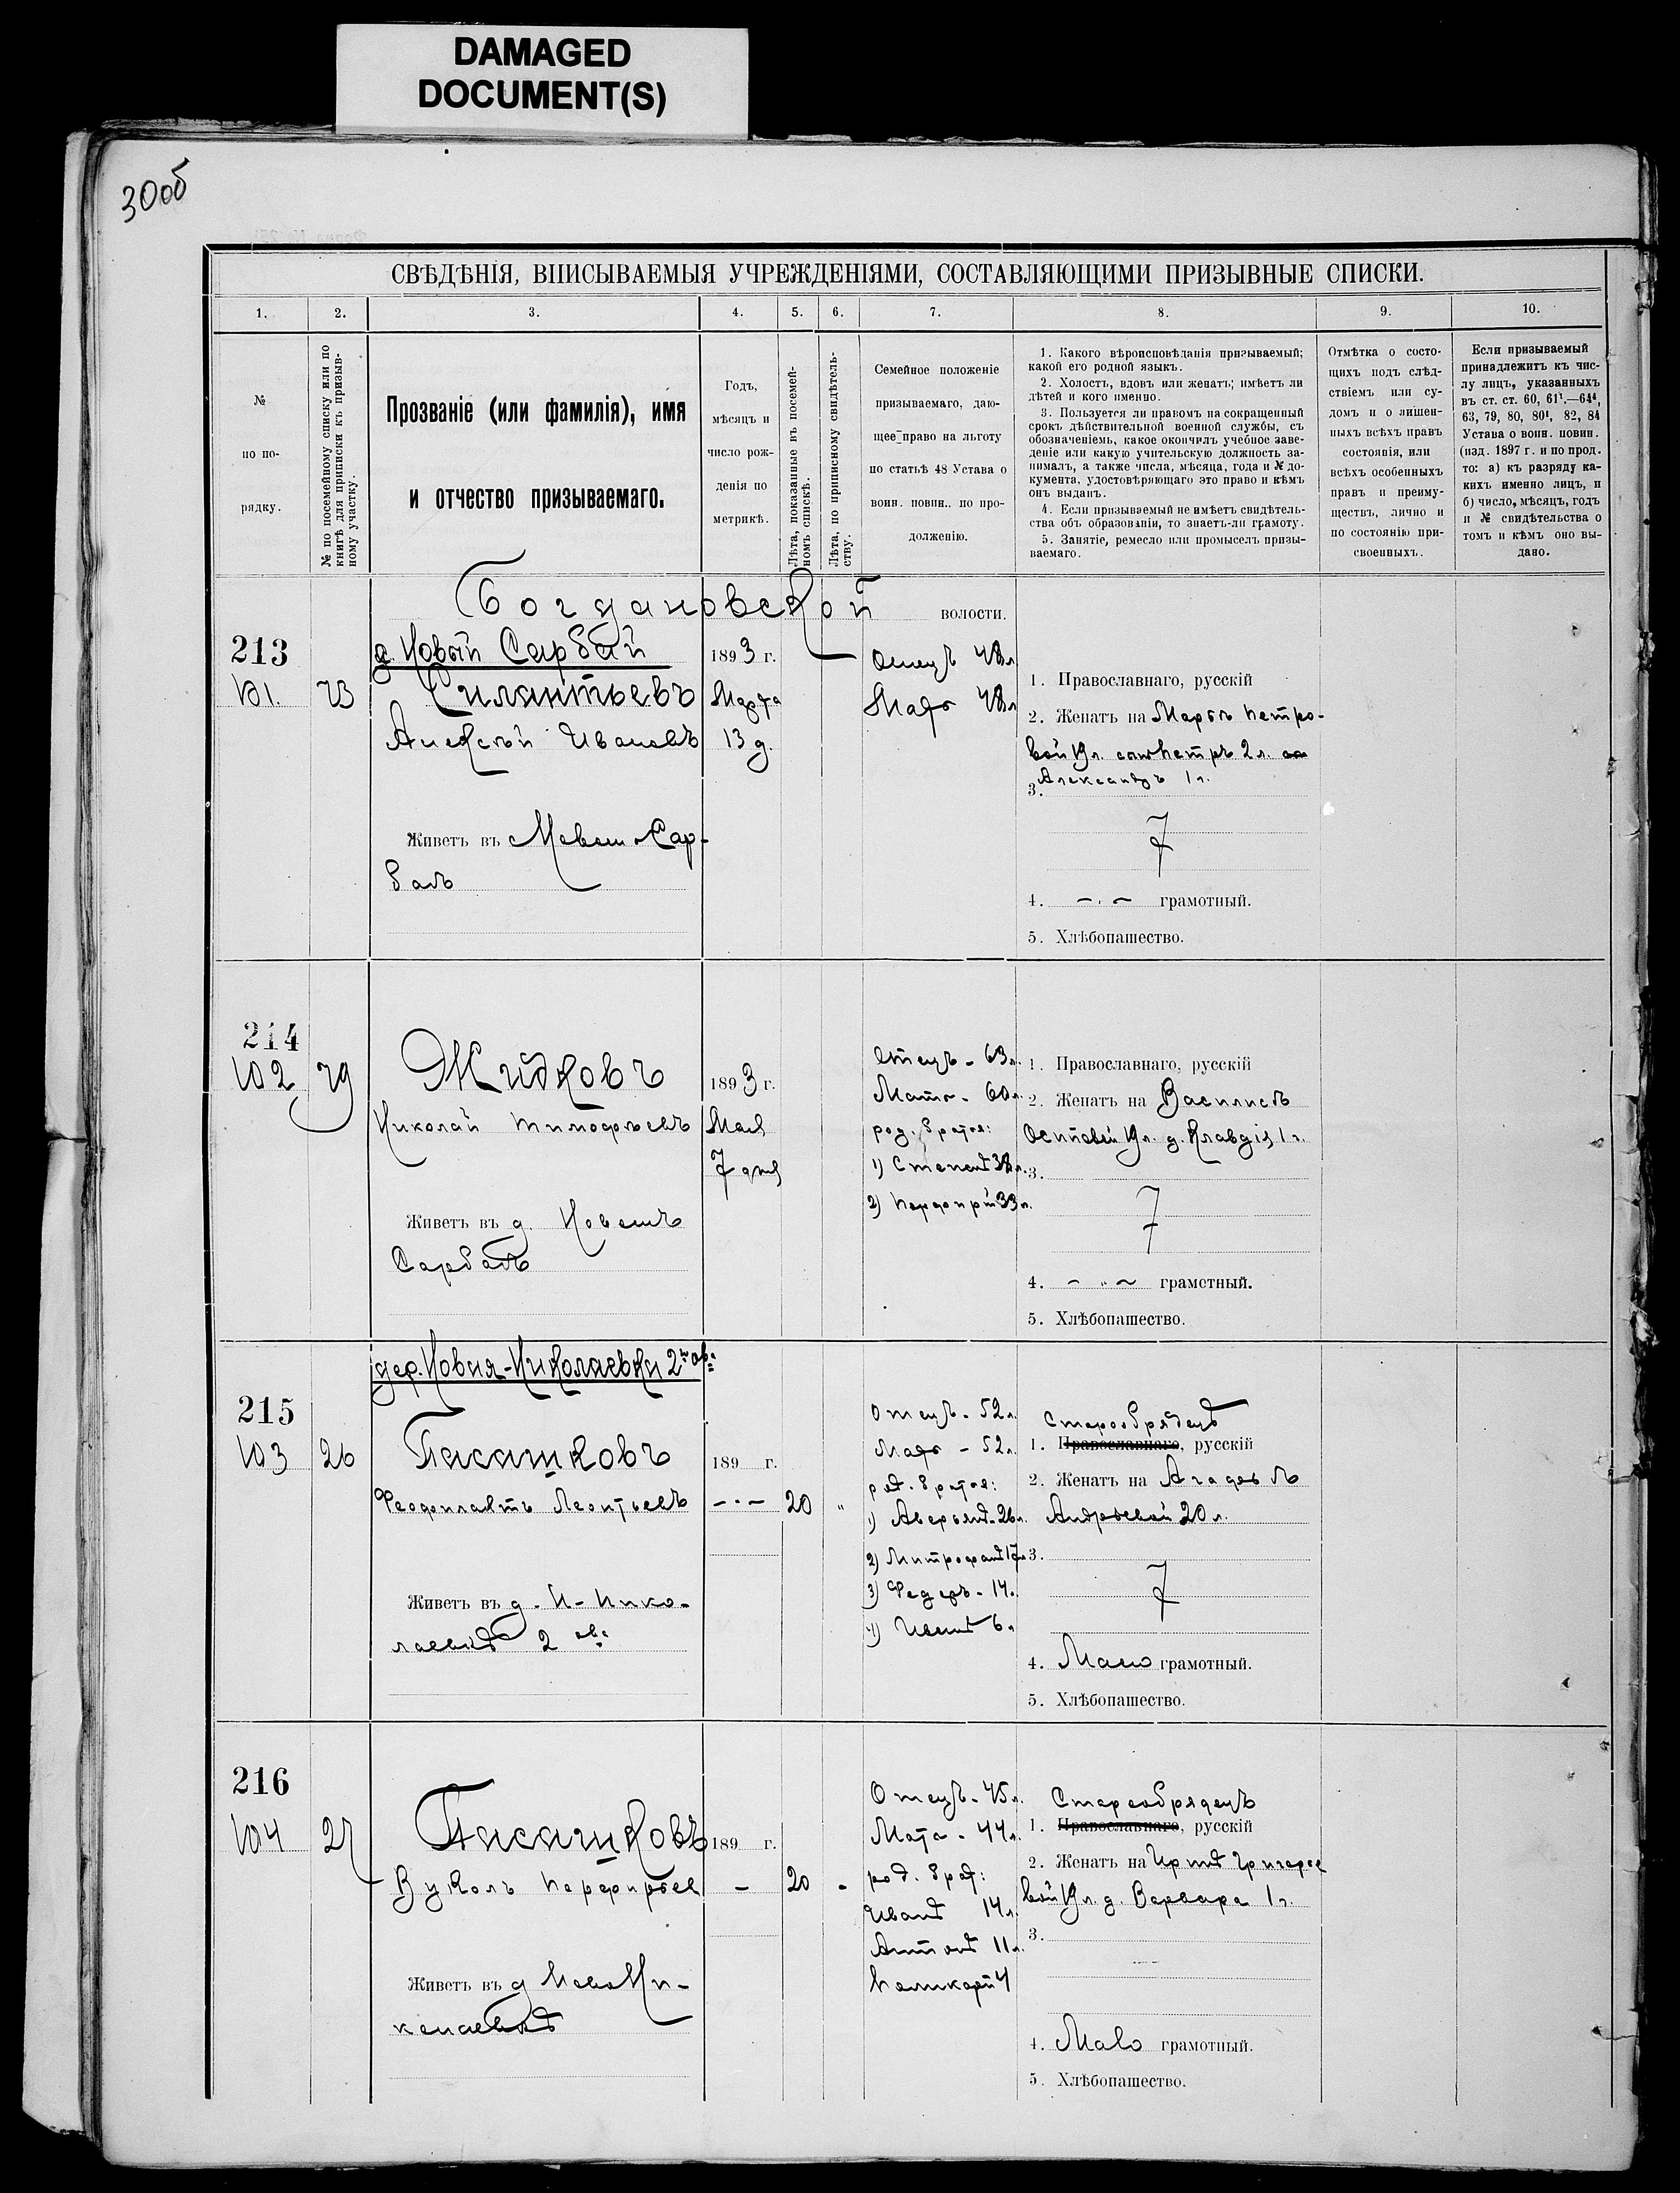 DAMAGED
DOCUMENT(S)
30об
СВѢДѢНІЯ, ВПИСЫВАЕМЫЯ УЧРЕЖДЕНІЯМИ, СОСТАВЛЯЮЩИМИ ПРИЗЫВНЫЕ СПИСКИ.
1. 2. 3. 4. 5. 6. 7. 8. 9. 10.
№
по по-
рядку.
№ по посемейному списку или по
книгѣ для приписки къ призыв-
ному участку.
Прозваніе (или фамилія), имя
и отчество призываемаго.
Годъ,
мѣсяцъ и
число рож-
денія по
метрикѣ.
Лѣта, показанные въ посемей-
номъ спискѣ.
Лѣта, по приписному свидѣтель-
ству.
Семейное положеніе
призываемаго, даю-
щее право на льготу
по статьѣ 48 Устава о
воин. повин., по про-
долженію.
1. Какого вѣроисповѣданія призываемый;
какой его родной языкъ.
2. Холостъ, вдовъ или женатъ; имѣетъ ли
дѣтей и кого именно.
3. Пользуется ли правомъ на сокращенный
срокъ дѣйствительной военной службы, съ
обозначеніемъ, какое окончилъ учебное заве-
деніе или какую учительскую должность за-
нималъ, а также числа, мѣсяца, года и № до-
кумента, удостовѣряющаго это право и кѣмъ
онъ выданъ.
4. Если призываемый не имѣетъ свидѣтель-
ства объ образованіи, то знаетъ-ли грамоту.
5. Занятіе, ремесло или промыселъ призы-
ваемаго.
Отмѣтка о состо-
щихъ подъ слѣд-
ствіемъ или су-
домъ и о лишен-
ныхъ всѣхъ правъ
состоянія, или
всѣхъ особенныхъ
правъ и преиму-
ществъ, лично и
по состоянію при-
своенныхъ.
Если призываемый
принадлежитъ къ чис-
лу лицъ, указанныхъ
въ ст. ст. 60, 61¹,—64⁴,
63, 79, 80, 80¹, 82, 84
Устава о воин. повин.
(изд. 1897 г. и по прод.
то: а) къ разряду ка-
кихъ именно лицъ, и
б) число, мѣсяцъ, годъ
и № свидѣтельства о
томъ и кѣмъ оно вы-
дано.
Богдановской волости.
213
101. 73
д. Новый Сарбай
Силантьевъ
Алексѣй Ивановъ
Живетъ въ Новом Сар-
баѣ
1893 г.
Марта
13 д.
Отецъ 48 л
Мать 48 л
1. Православнаго, русскій
2. Женатъ на Марѳѣ Петро-
вой 19 л. сын Петръ 2 л.
Александръ 1 г.
3.
4. — грамотный.
5. Хлѣбопашество.
214
102 79
Жидковъ
Николай Тимофѣевъ
Живетъ въ д. Новомъ
Сарбаѣ
1893 г.
Мая
7 дня
Отецъ - 63 л.
Мать - 60 л.
род. братья:
1) Степанъ 38 л.
2) Порфирій 33 л.
1. Православнаго, русскій
2. Женатъ на Василисѣ
Осиповой 19 л. д. Клавдія 1 г.
3.
4. — грамотный.
5. Хлѣбопашество.
дер. Новая-Николаевка 2го об.
215
103 26
Пасашковъ
Феодоплантъ Леонтьевъ
Живетъ въ д. Н-Нико-
лаевкѣ 2 об.
189 г.
20 "
Отецъ - 52 л.
Мать - 52 л.
род. братья:
1) Аверьянъ - 26 л.
2) Митрофанъ 17 л.
3) Федоръ - 14.
4) Иванъ 6.
Старообрядецъ
1. Православнаго, русскій
2. Женатъ на
Андреевой 20 л.
3.
4. Мало грамотный.
5. Хлѣбопашество.
216
104 27
Пасашковъ
Вуколъ Порфирьев
Живетъ въ д Ново Ни-
колаевкѣ
189 г.
— 20 "
Отецъ - 45 л.
Мать - 44 л.
род. брат:
Иванъ 14 л.
Антонъ 11 л.
Поликарп 4
Старообрядецъ
1. Православнаго, русскій
2. Женатъ на Иринѣ Григорье
вой 19 л. д. Варвара 1 г.
3.
4. Мало грамотный.
5. Хлѣбопашество.